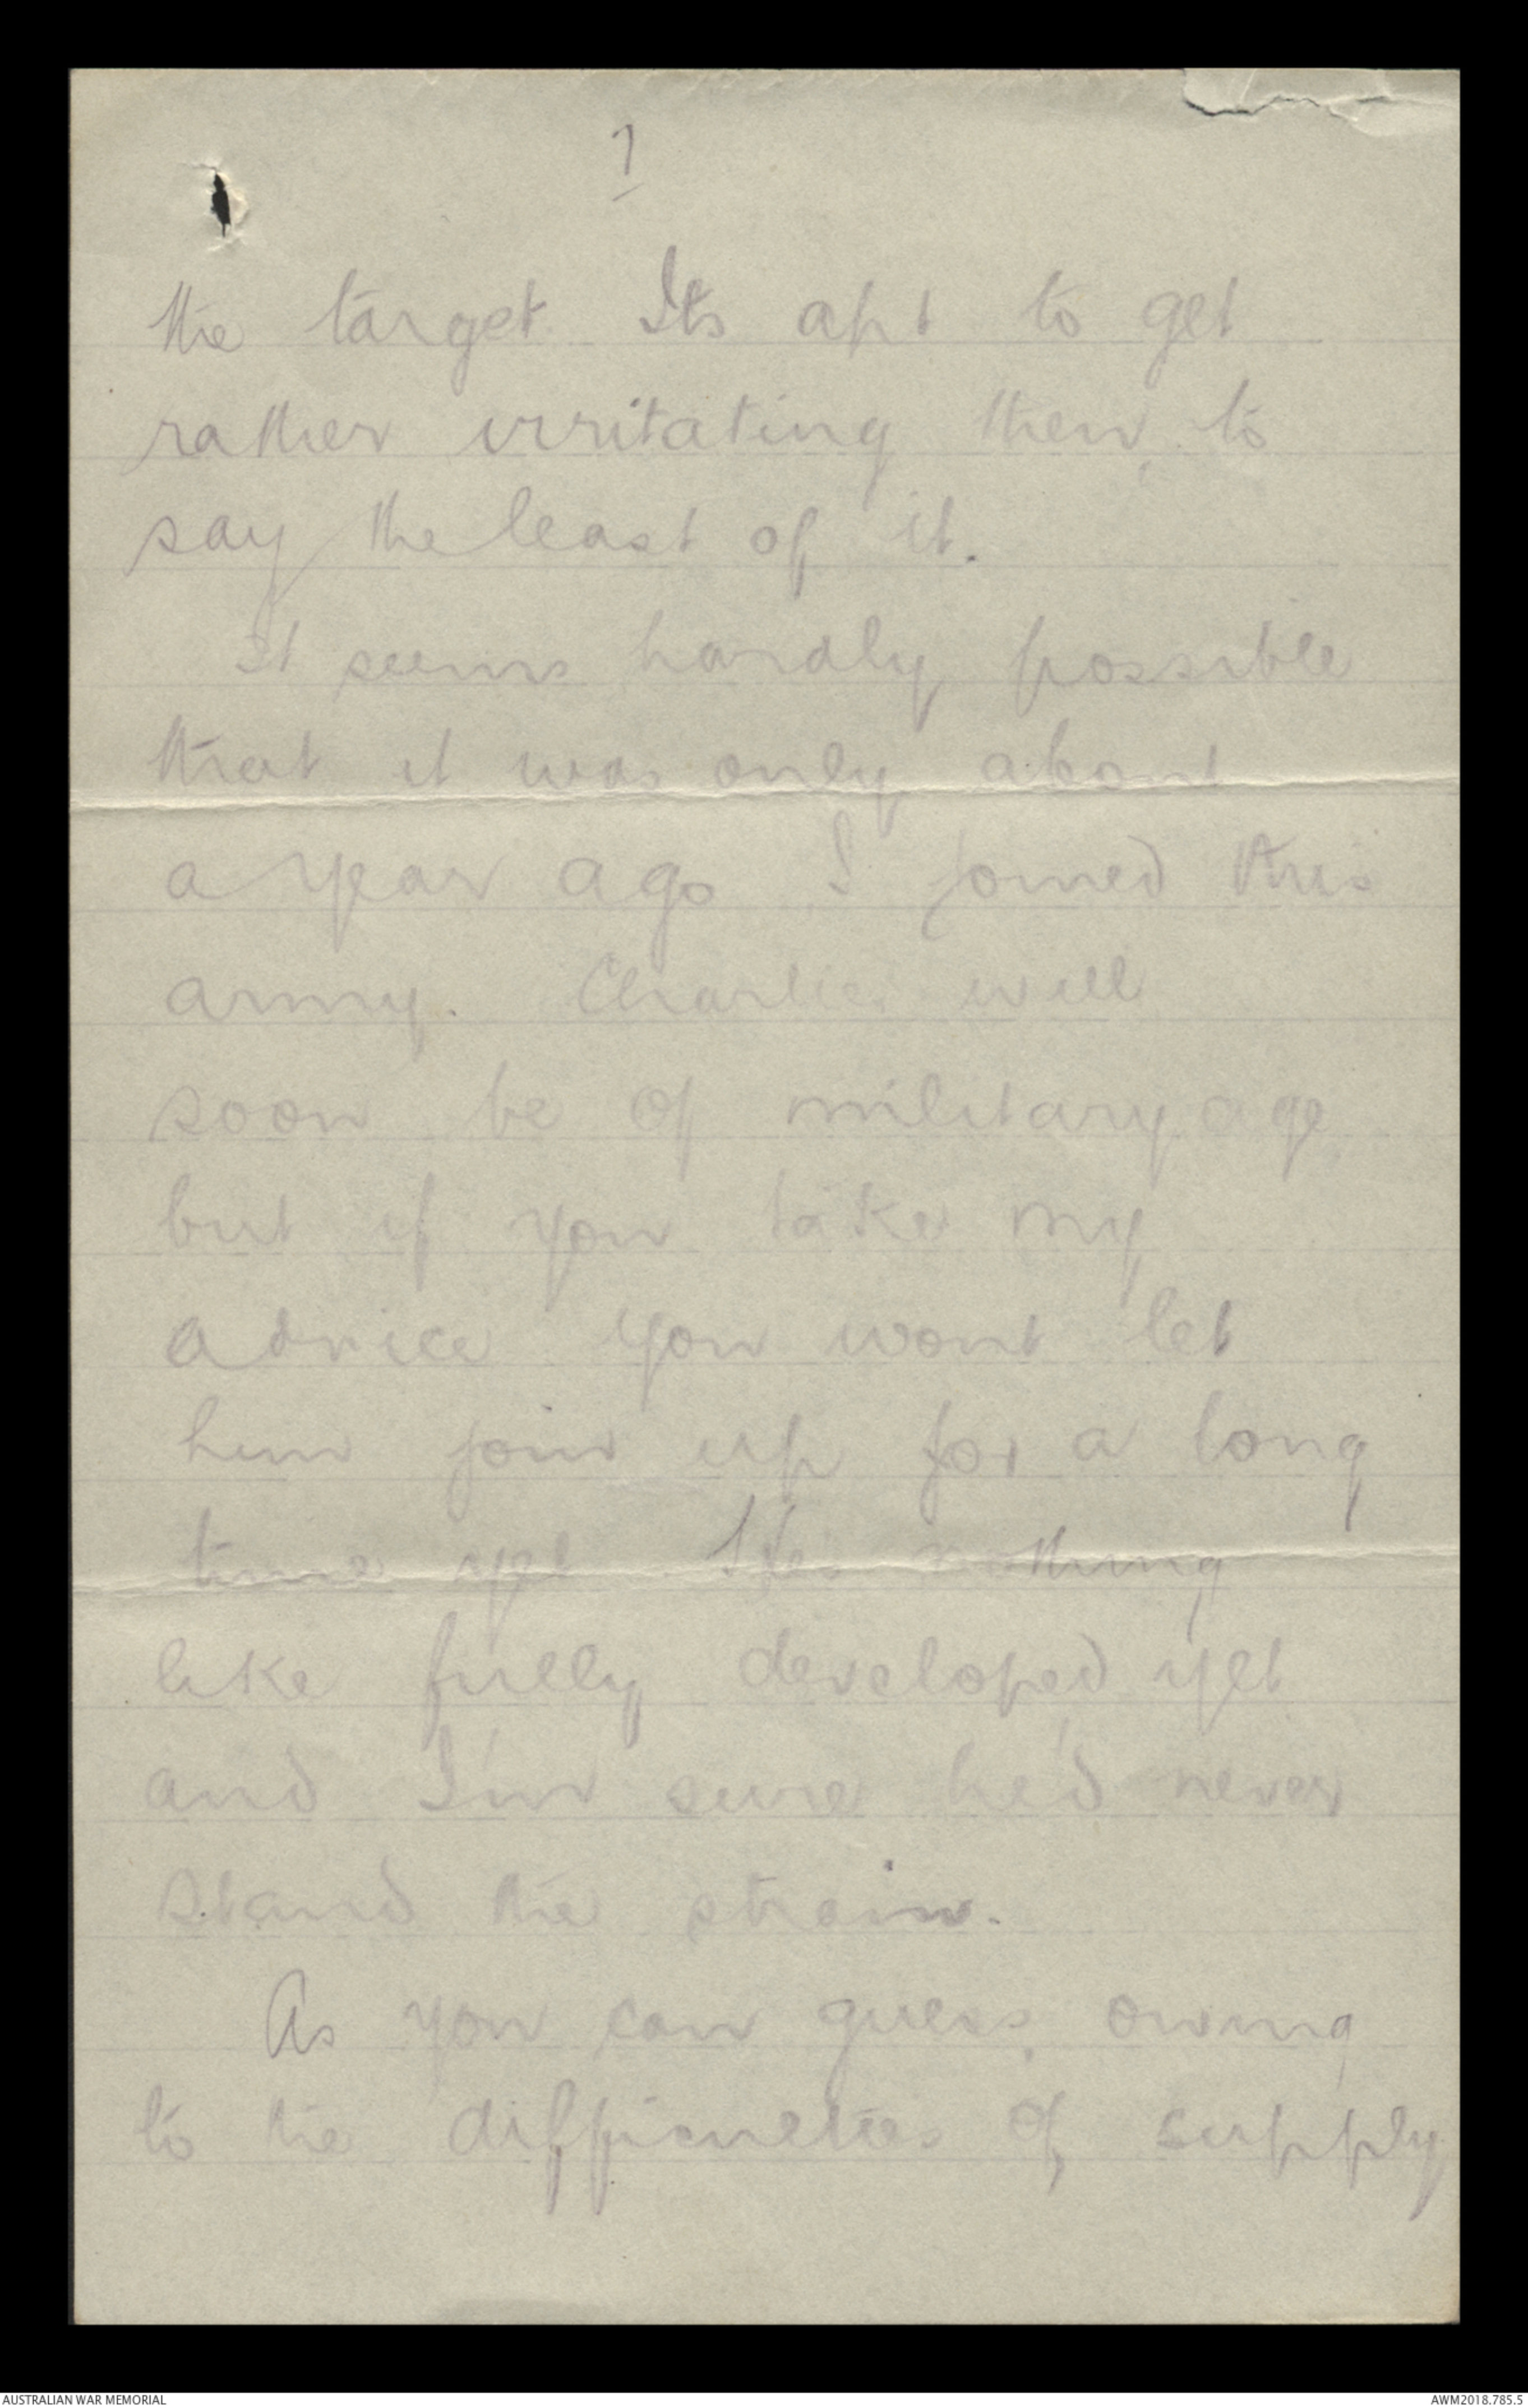 7
the target. Its apt to get
rather irritating then, to
say the least of it.
It seems hardly possible
that it was only about
a year ago I joined this
army. Charlie will
soon be of military age
but if you take my
advice you wont let
him join up for a long
time yet. Hes nothing
like fully developed yet
and I'm sure he'd never
stand the strain.
As you can guess, owing
to the difficulties of supply
AUSTRALIAN WAR MEMORIAL
AWM2018.785.5